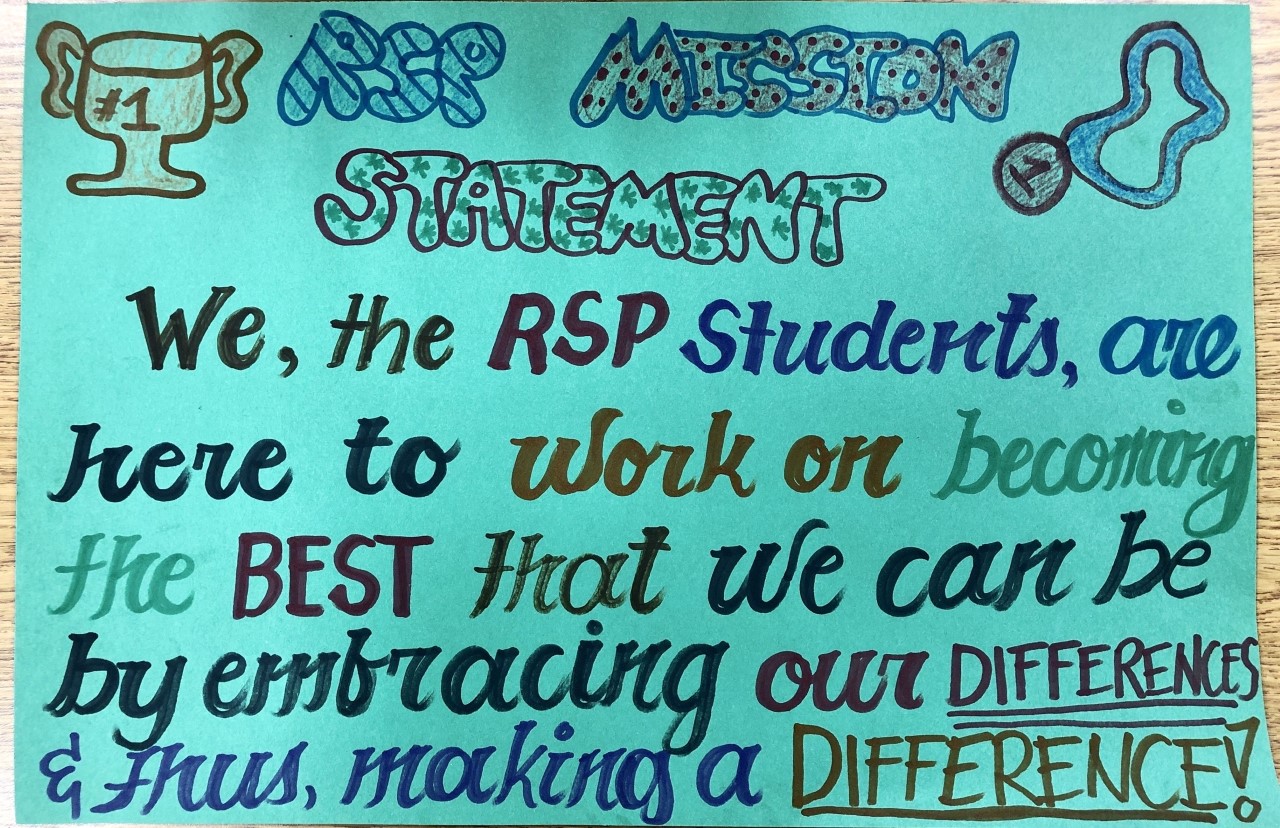 #1 RSP MISSION 1
STATEMENT
We, the RSP Students, are
here to work on becoming
the BEST that we can be
by embracing our DIFFERENCES
& thus, making a DIFFERENCE!